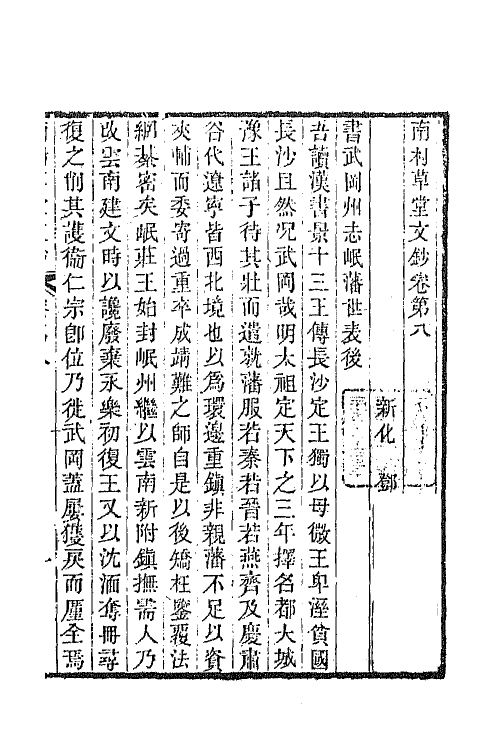 南村草堂文鈔卷第八
新化　鄧
書武岡州志岷藩世表後
吾讀漢書景十三王傳長沙定王獨以母微王卑溼貧國
長沙且然況武岡哉明太祖定天下之三年擇名都大城
豫王諸子待其壯而遣就藩服若秦若晉若燕齊及慶肅
谷代遼寧皆西北境也以爲環邊重鎮非親藩不足以資
夾輔而委寄過重卒成靖難之師自是以後矯枉鑒覆法
網綦密矣岷莊王始封岷州繼以雲南新附鎮撫需人乃
改雲南建文時以讒廢棄永樂初復王又以沈湎奪冊尋
復之削其護衞仁宗卽位乃徙武岡蓋屢獲戾而厪全焉